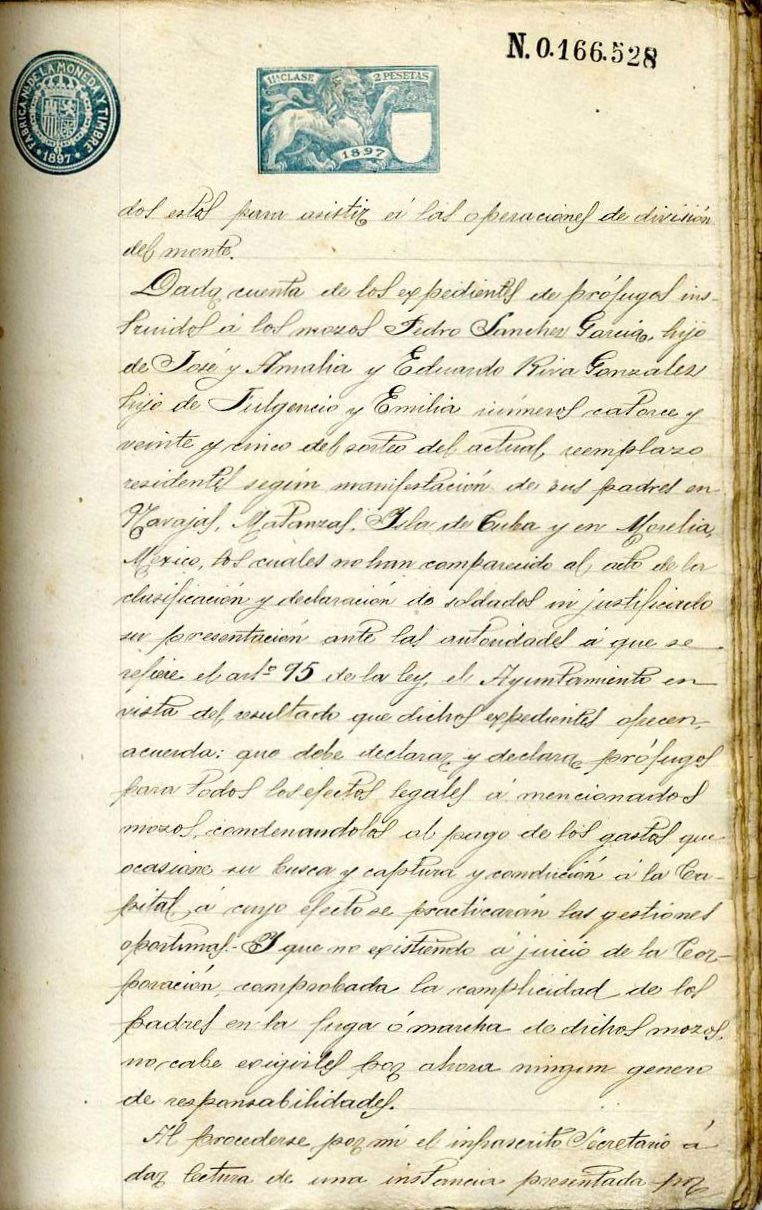 N.0.166.528
FABRICA NAL DE LA MONEDA Y TIMBRE
1897
11ª CLASE 2 PESETAS
1897
dos estos para asistir á las operaciones de división
del monte.
Dada cuenta de los expedientes de prófugos ins-
truidos á los mozos Pedro Sanchez Garcia, hijo
de José y Amalia y Eduardo Riva Gonzalez
hijo de Fulgencio y Emilia números catorce y
veinte y cinco del sorteo del actual reemplazo
residentes según manifestación de sus padres en
Navajas, Matanzas, Isla de Cuba y en Morelia,
Mexico, los cuales no han comparecido al acto de la
clasificación y declaración de soldados ni justificado
su presentación ante las autoridades á que se
refiere el artº 95 de la ley, el Ayuntamiento en
vista del resultado que dichos expedientes ofrecen,
acuerda: que debe declarar y declara prófugos
para todos los efectos legales á mencionados
mozos, condenandolos al pago de los gastos que
ocasione su busca y captura y condución á la Ca-
pital, á cuyo efecto se practicarán las gestiones
oportunas.- Y que no existiendo á juicio de la Cor-
poración, comprobada la complicidad de los
padres en la fuga ó marcha de dichos mozos,
no cabe exigirles por ahora ningun genero
de responsabilidades.
Al procederse por mi el infrascrito Secretario á
dar lectura de una instancia presentada por